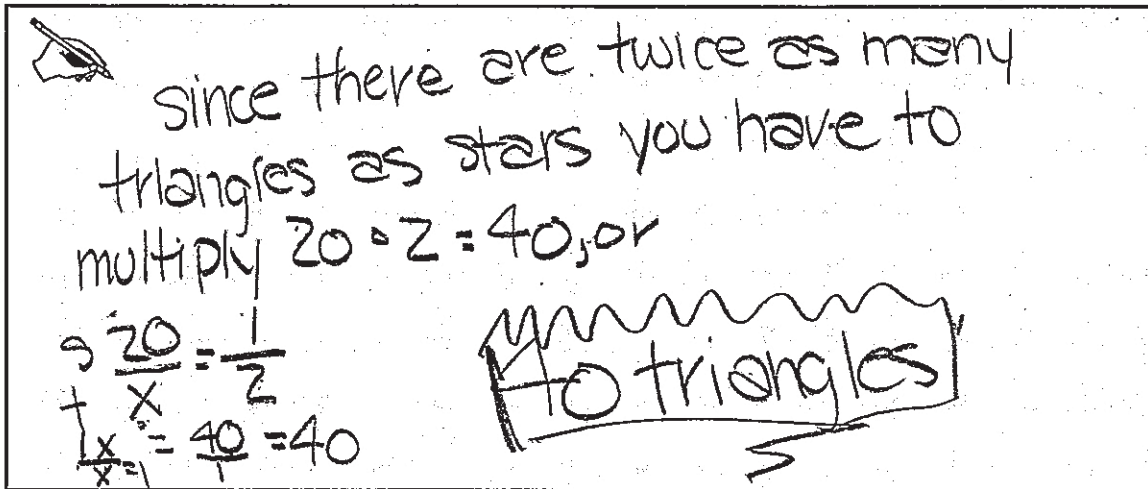 since there are twice as many
triangles as stars you have to
multiply 20 • 2 = 40, or
s 20/x = 1/2
t
40 triangles
1x/x=1 = 40/1 = 40